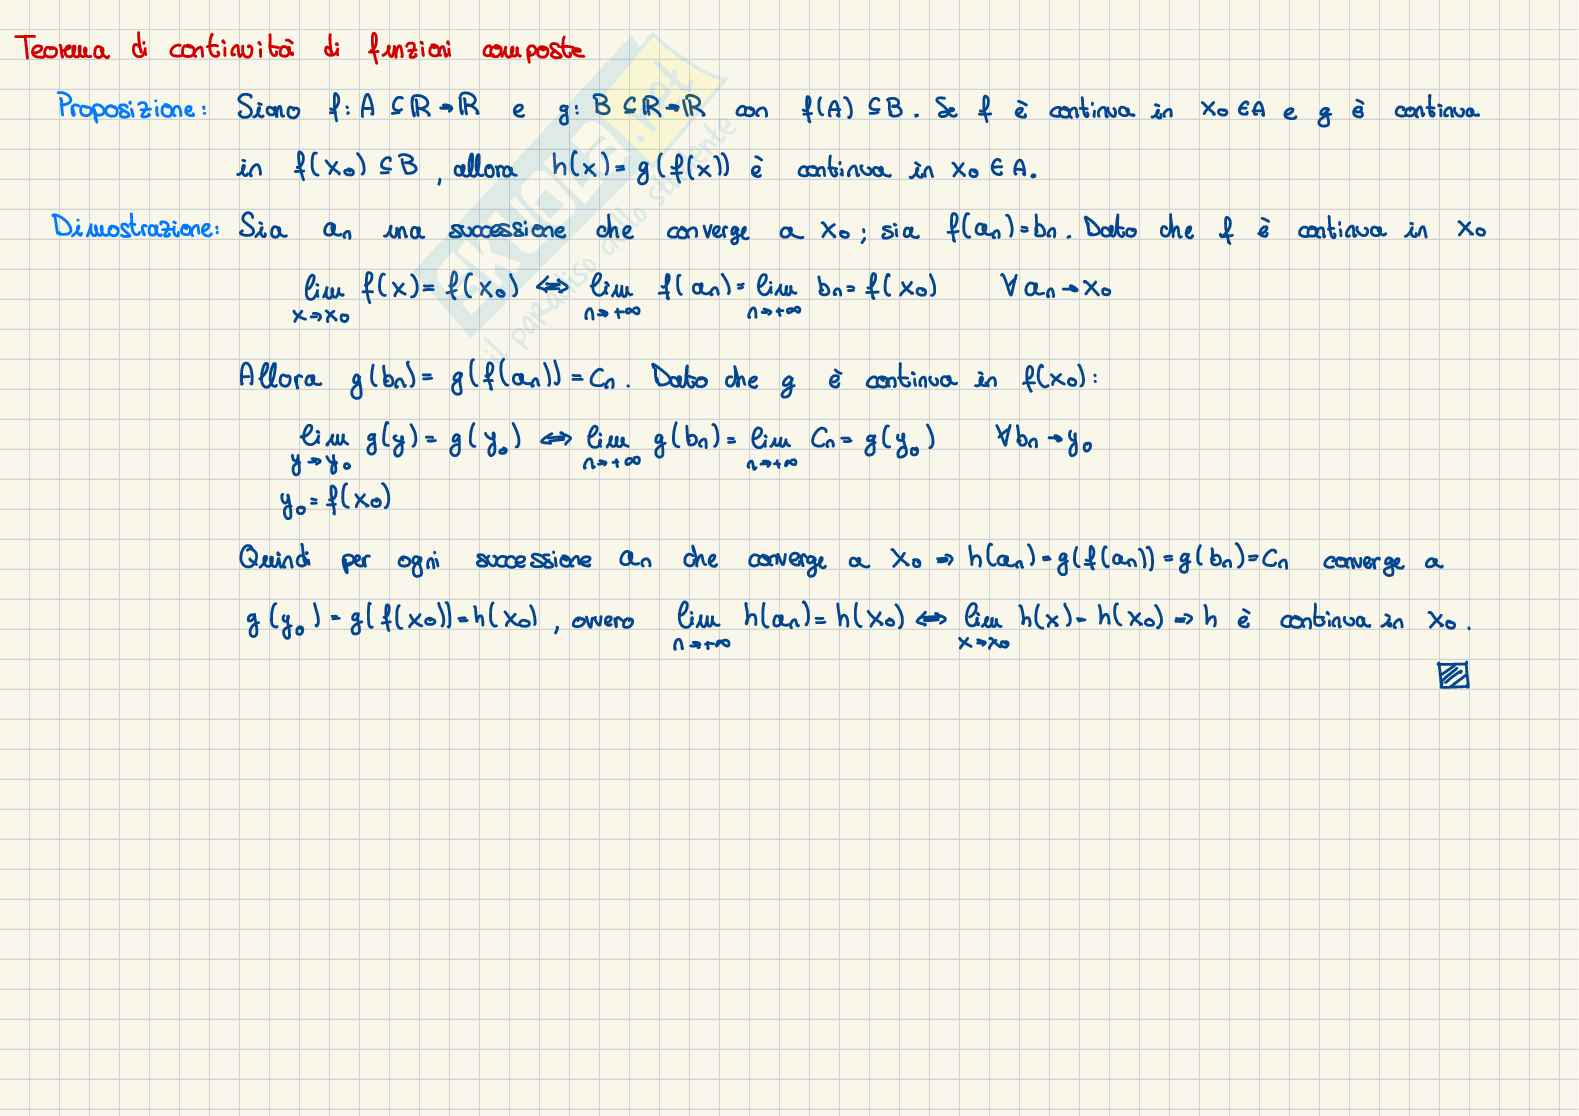 Teorema di continuità di funzioni composte
Proposizione: Siano f: A ⊆ ℝ → ℝ e g: B ⊆ ℝ → ℝ con f(A) ⊆ B. Se f è continua in x₀ ∈ A e g è continua
in f(x₀) ⊆ B, allora h(x) = g(f(x)) è continua in x₀ ∈ A.
Dimostrazione: Sia aₙ una successione che converge a x₀; sia f(aₙ) = bₙ. Dato che f è continua in x₀
lim f(x) = f(x₀) ⟺ lim f(aₙ) = lim bₙ = f(x₀) ∀ aₙ → x₀
x→x₀ n→+∞ n→+∞
Allora g(bₙ) = g(f(aₙ)) = cₙ. Dato che g è continua in f(x₀):
lim g(y) = g(y₀) ⟺ lim g(bₙ) = lim cₙ = g(y₀) ∀ bₙ → y₀
y→y₀ n→+∞ n→+∞
y₀ = f(x₀)
Quindi per ogni successione aₙ che converge a x₀ ⇒ h(aₙ) = g(f(aₙ)) = g(bₙ) = cₙ converge a
g(y₀) = g(f(x₀)) = h(x₀), ovvero lim h(aₙ) = h(x₀) ⟺ lim h(x) = h(x₀) ⇒ h è continua in x₀.
n→+∞ x→x₀
SKUOLA.net
il paradiso dello studente